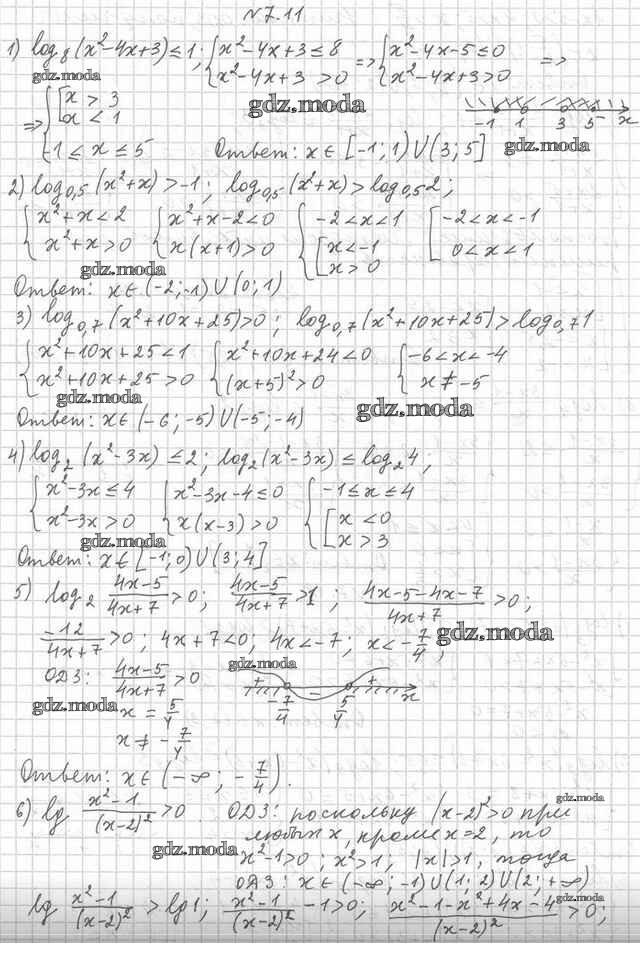 №7.11
1) log₈(x²-4x+3)≤1; {x²-4x+3≤8 => {x²-4x-5≤0 =>
{x²-4x+3>0 {x²-4x+3>0
gdz.moda
gdz.moda
=> {[x>3
[x<1
-1 1 3 5 x
{-1≤x≤5 Ответ: x∈[-1;1)∪(3;5] gdz.moda
2) log₀,₅(x²+x)>-1; log₀,₅(x²+x)>log₀,₅2;
{x²+x<2 {x²+x-2<0 {-2<x<1 [-2<x<-1
{x²+x>0 {x(x+1)>0 {[x<-1 [0<x<1
[x>0
gdz.moda
Ответ: x∈(-2;-1)∪(0;1)
3) log₀,₇(x²+10x+25)>0; log₀,₇(x²+10x+25)>log₀,₇1
{x²+10x+25<1 {x²+10x+24<0 {-6<x<-4
{x²+10x+25>0 {(x+5)²>0 {x≠-5
gdz.moda
gdz.moda
Ответ: x∈(-6;-5)∪(-5;-4)
4) log₂(x²-3x)≤2; log₂(x²-3x)≤log₂4;
{x²-3x≤4 {x²-3x-4≤0 {-1≤x≤4
{x²-3x>0 {x(x-3)>0 {[x<0
[x>3
gdz.moda
Ответ: x∈[-1;0)∪(3;4]
5) log₂ (4x-5)/(4x+7)>0; (4x-5)/(4x+7)>1; (4x-5-4x-7)/(4x+7)>0;
-12/(4x+7)>0; 4x+7<0; 4x<-7; x<-7/4;
gdz.moda
ОДЗ: (4x-5)/(4x+7)>0
gdz.moda
+ - + x
-7/4 5/4
gdz.moda
x=5/4
x≠-7/4
Ответ: x∈(-∞;-7/4).
6) lg (x²-1)/(x-2)²>0. ОДЗ: поскольку (x-2)²>0 при
gdz.moda
любых x, кроме x=2, то
gdz.moda
x²-1>0; x²>1, |x|>1, тогда
ОДЗ: x∈(-∞;-1)∪(1;2)∪(2;+∞)
gdz.moda
lg (x²-1)/(x-2)²>lg1; (x²-1)/(x-2)²-1>0; (x²-1-x²+4x-4)/(x-2)²>0;